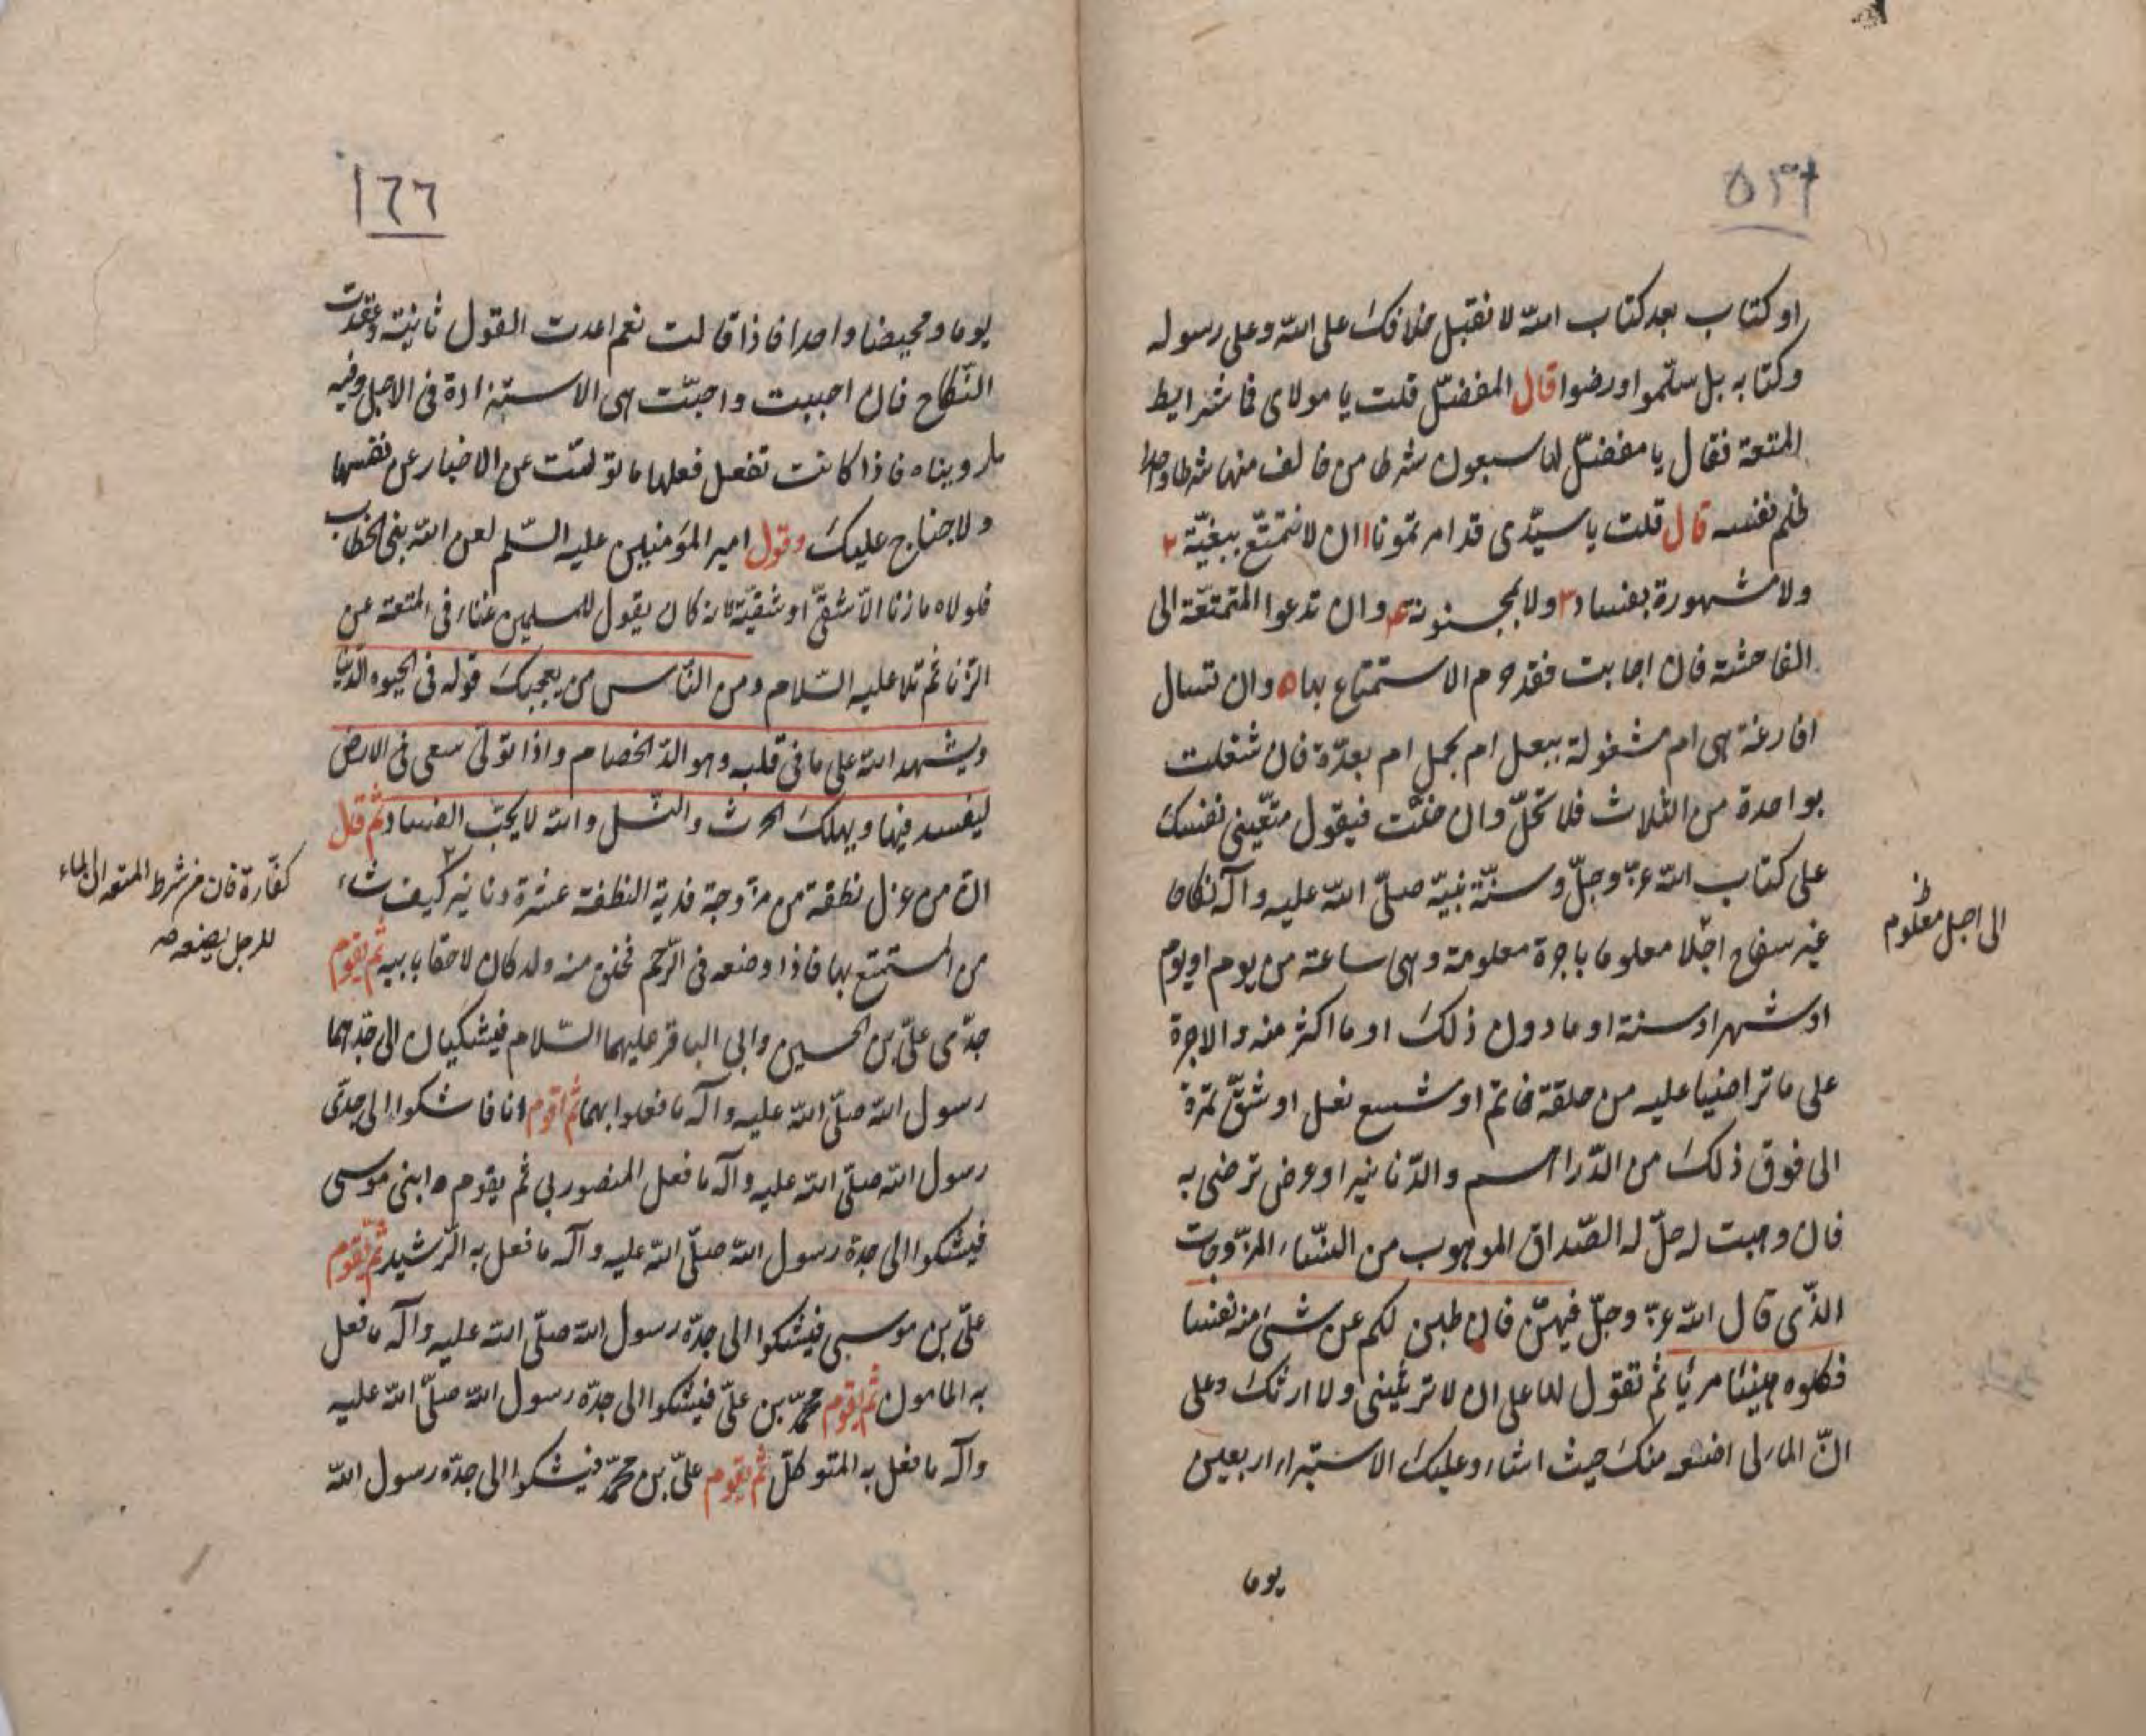 او كتاب بعد كتاب الله لا نقبل خلافك على الله وعلى رسوله
وكتابه بل سلّموا ورضوا قال المفضّل قلت يا مولاى فما شرايط
المتعة فقال يا مفضّل لها سبعون شرطا من خالف منها شرطا واحدا
ظلم نفسه قال قلت يا سيّدى قد امرتمونا ١ ان لا نتمتّع ببغيّة ٢
ولا مشهورة بفساد ٣ ولا بمجنونة ٤ وان ندعوا المتمتعّة الى
الفاحشة فان اجابت فقد حرم الاستمتاع بها ٥ وان نسال
افارغة هى ام مشغولة ببعل ام بحمل ام بعدّة فان شغلت
بواحدة من الثلاث فلا تحلّ وان خلت فيقول متّعينى نفسك
على كتاب الله عزّ وجلّ وسنّة نبيّه صلّى الله عليه وآله نكاحا
غير سفاح اجلا معلوما باجرة معلومة وهى ساعة من يوم او يوم
الى اجل معلوم
او شهر او سنة او ما دون ذلك او ما اكثر منه والاجرة
على ما تراضيا عليه من حلقة خاتم او شسع نعل او شقّ تمرة
الى فوق ذلك من الدّراهم والدّنانير او عرض ترضى به
فان وهبت له حلّ له الصّداق الموهوب من النّساء المزّوجات
الذّى قال الله عزّ وجلّ فيهنّ فان طبن لكم عن شىء منه نفسا
فكلوه هنيئا مريا ثم تقول لها على ان لا ترثينى ولا ارثك وعلى
انّ الماء لى اضعه منك حيث اشاء وعليك الاستبراء اربعين
يوما
١٦٦
يوما ومحيضا واحدا فاذا قالت نعم اعدت القول ثانية وعقدت
النّكاح فان احببت واحبّت هى الاستزادة فى الاجل وفيه
ما رويناه فاذا كانت تفعل فعلها ما تولّت عن الاخبار عن نفسها
ولا جناح عليك وقول امير المؤمنين عليه السّلم لعن الله بنى الخطاب
فلولاه ما زنا الّا شقىّ او شقيّة لانه كان يقول للمسلمين غناء فى المتعة عن
الزّنا ثم تلا عليه السّلام ومن النّاس من يعجبك قوله فى الحيوه الدّنيا
ويشهد الله على ما فى قلبه وهو الدّ الخصام واذا تولّى سعى فى الارض
ليفسد فيها ويهلك الحرث والنّسل والله لا يحبّ الفساد ثم قال
انّ من عزل نطفة من مزّوجة فدية النطفة عشرة دنانير كيف شاء
كفّارة فان من شرط المتعه ان الماء
للرجل يضعه صه
من المستمتع بها فاذا وضعه فى الرّحم فخلق منه ولد كان لاحقا بابيه ثم يقوم
جدّى علىّ بن الحسين وابى الباقر عليهما السّلام فيشكيان الى جدّهما
رسول الله صلّى الله عليه وآله ما فعلوا بهما ثم اقوم انا فاشكوا الى جدّى
رسول الله صلّى الله عليه وآله ما فعل المنصور بى ثم يقوم ابنى موسى
فيشكوا الى جدّه رسول الله صلّى الله عليه وآله ما فعل به الرّشيد ثم يقوم
علىّ بن موسى فيشكوا الى جدّه رسول الله صلّى الله عليه وآله ما فعل
به المامون ثم يقوم محمّد بن علىّ فيشكوا الى جدّه رسول الله صلّى الله عليه
وآله ما فعل به المتوكلّ ثم يقوم علىّ بن محمّد فيشكوا الى جدّه رسول الله